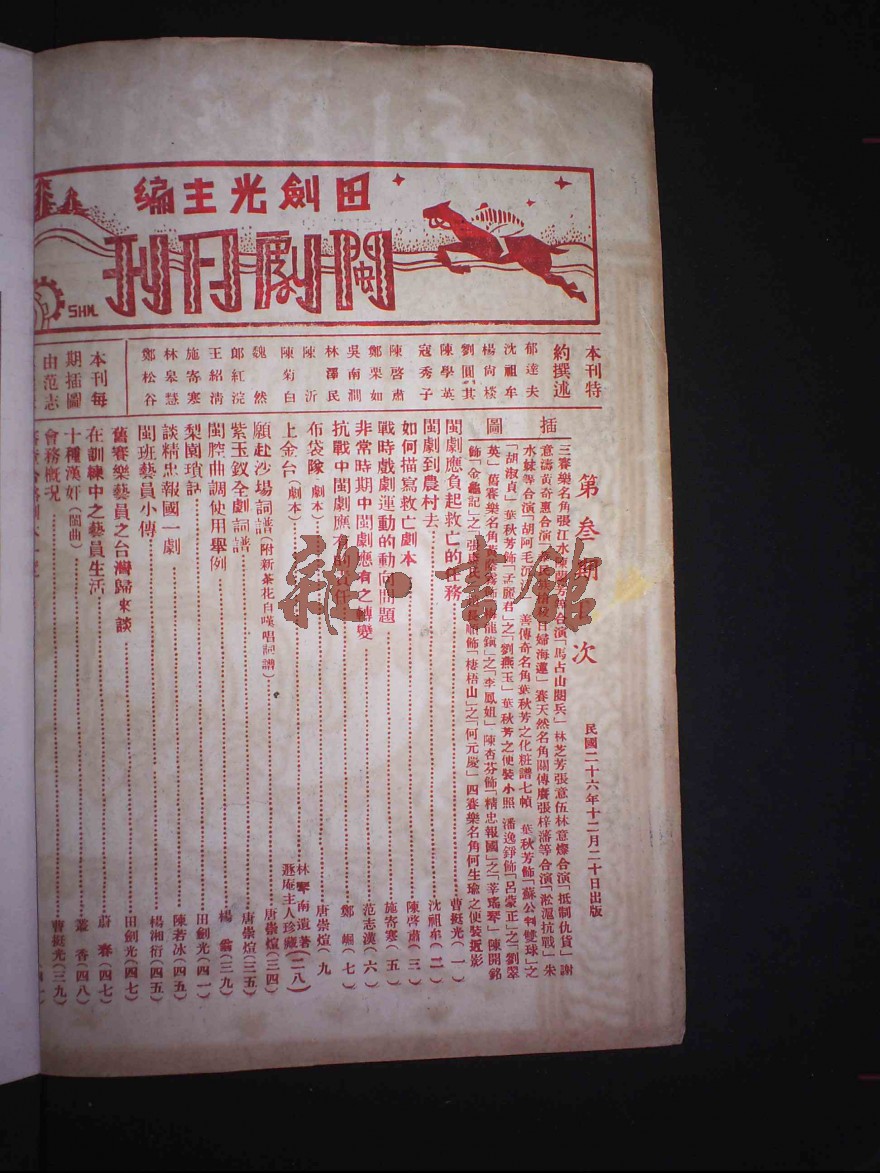 田劍光主編
閩劇月刊
SHM
本刊特
約撰述
郁達夫
沈祖牟
楊尚棪
劉圓其
陳學英
寇秀子
陳啓肅
鄭栗如
吳南澗
林澤民
陳沂
陳菊白
魏然
郎紅浣
王紹清
施寄寒
林皋慧
鄭松谷
本刊每
期插圖
由范志
第叁期 次
民國二十六年十二月二十日出版
插圖
三賽樂名角張江水陳 合演「馬占山閱兵」林芝芳張意伍林意燦合演「抵制仇貨」謝
意濤黃奇惠合演 日婦海蓮」賽天然名角關傳廣張梓藩等合演「淞滬抗戰」朱
水妹等合演「胡阿毛 善傳奇名角葉秋芳之化粧譜七幀 葉秋芳飾「蘇公判雙球」之
「胡淑貞」葉秋芳飾「孟麗君」之「劉燕玉」葉秋芳之便裝小照 潘逸錚飾「呂蒙正」之「劉翠
英」舊賽樂名角 龍鎮」之「李鳳姐」陳杏芬飾「精忠報國」之「莘瑤琴」陳開銘
飾「金龜記」之「張 飾「棲梧山」之「何元慶」四賽樂名角何生瑜之便裝近影
閩劇應負起救亡的任務 曹挺光(一)
閩劇到農村去 沈祖牟(二)
如何描寫救亡劇本 陳啓肅(三)
戰時戲劇運動的動向問題 施寄寒(五)
非常時期中閩劇應有之轉變 范志漢(六)
抗戰中閩劇應有的責任 鄭 (七)
布袋隊(劇本) 唐崇煊(九
上金台(劇本) 林琴南遺著 遯庵主人珍藏(二八)
願赴沙場詞譜(附新茶花自嘆唱詞譜) 唐崇煊(三四)
紫玉釵全劇詞譜 唐崇煊(三五)
閩腔曲調使用舉例 楊 (三九)
梨園瑣話 田劍光(四一)
談精忠報國一劇 陳若冰(四五)
閩班藝員小傳 楊湘衍(四五)
舊賽樂藝員之台灣歸來談 田劍光(四七)
在訓練中之藝員生活 蔚春(四七)
十種漢奸(閩曲) 叢香(四八)
會務概況 曹挺光(三九)
雜·書館